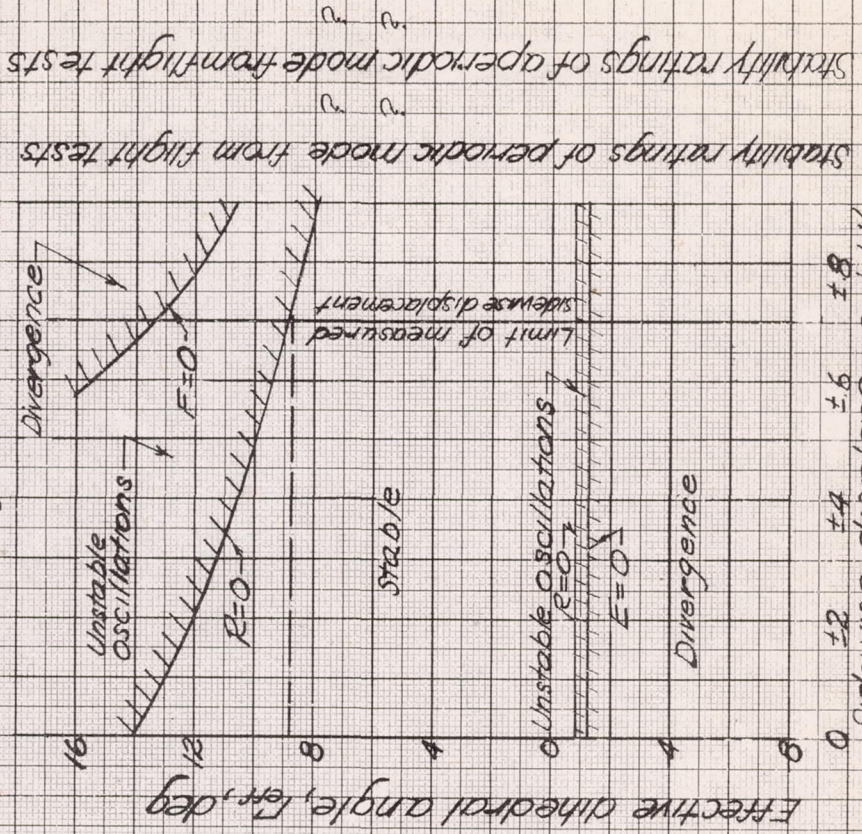 Stability ratings of aperiodic mode from flight tests
Stability ratings of periodic mode from flight tests
Divergence
Unstable
oscillations
F=0
R=0
Limit of measured
sidewise displacement
Stable
Unstable oscillations
R=0
E=0
Divergence
Effective dihedral angle, Γeff, deg
16
12
8
4
0
4
8
0 ±2 ±4 ±6 ±8